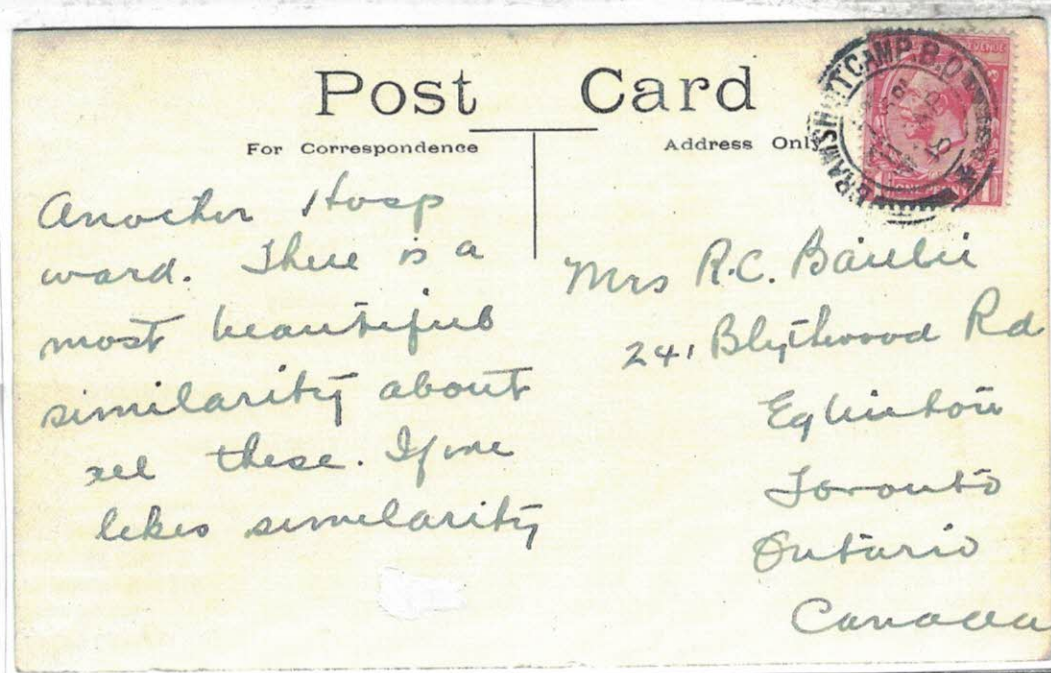 Post Card
For Correspondence
Address Only
BRAMSHOTT CAMP. B.O
Another Hosp
ward. There is a
most beautiful
similarity about
all these. If one
likes similarity
Mrs R.C.
241 Blythwood Rd
Eglinton
Toronto
Ontario
Canada